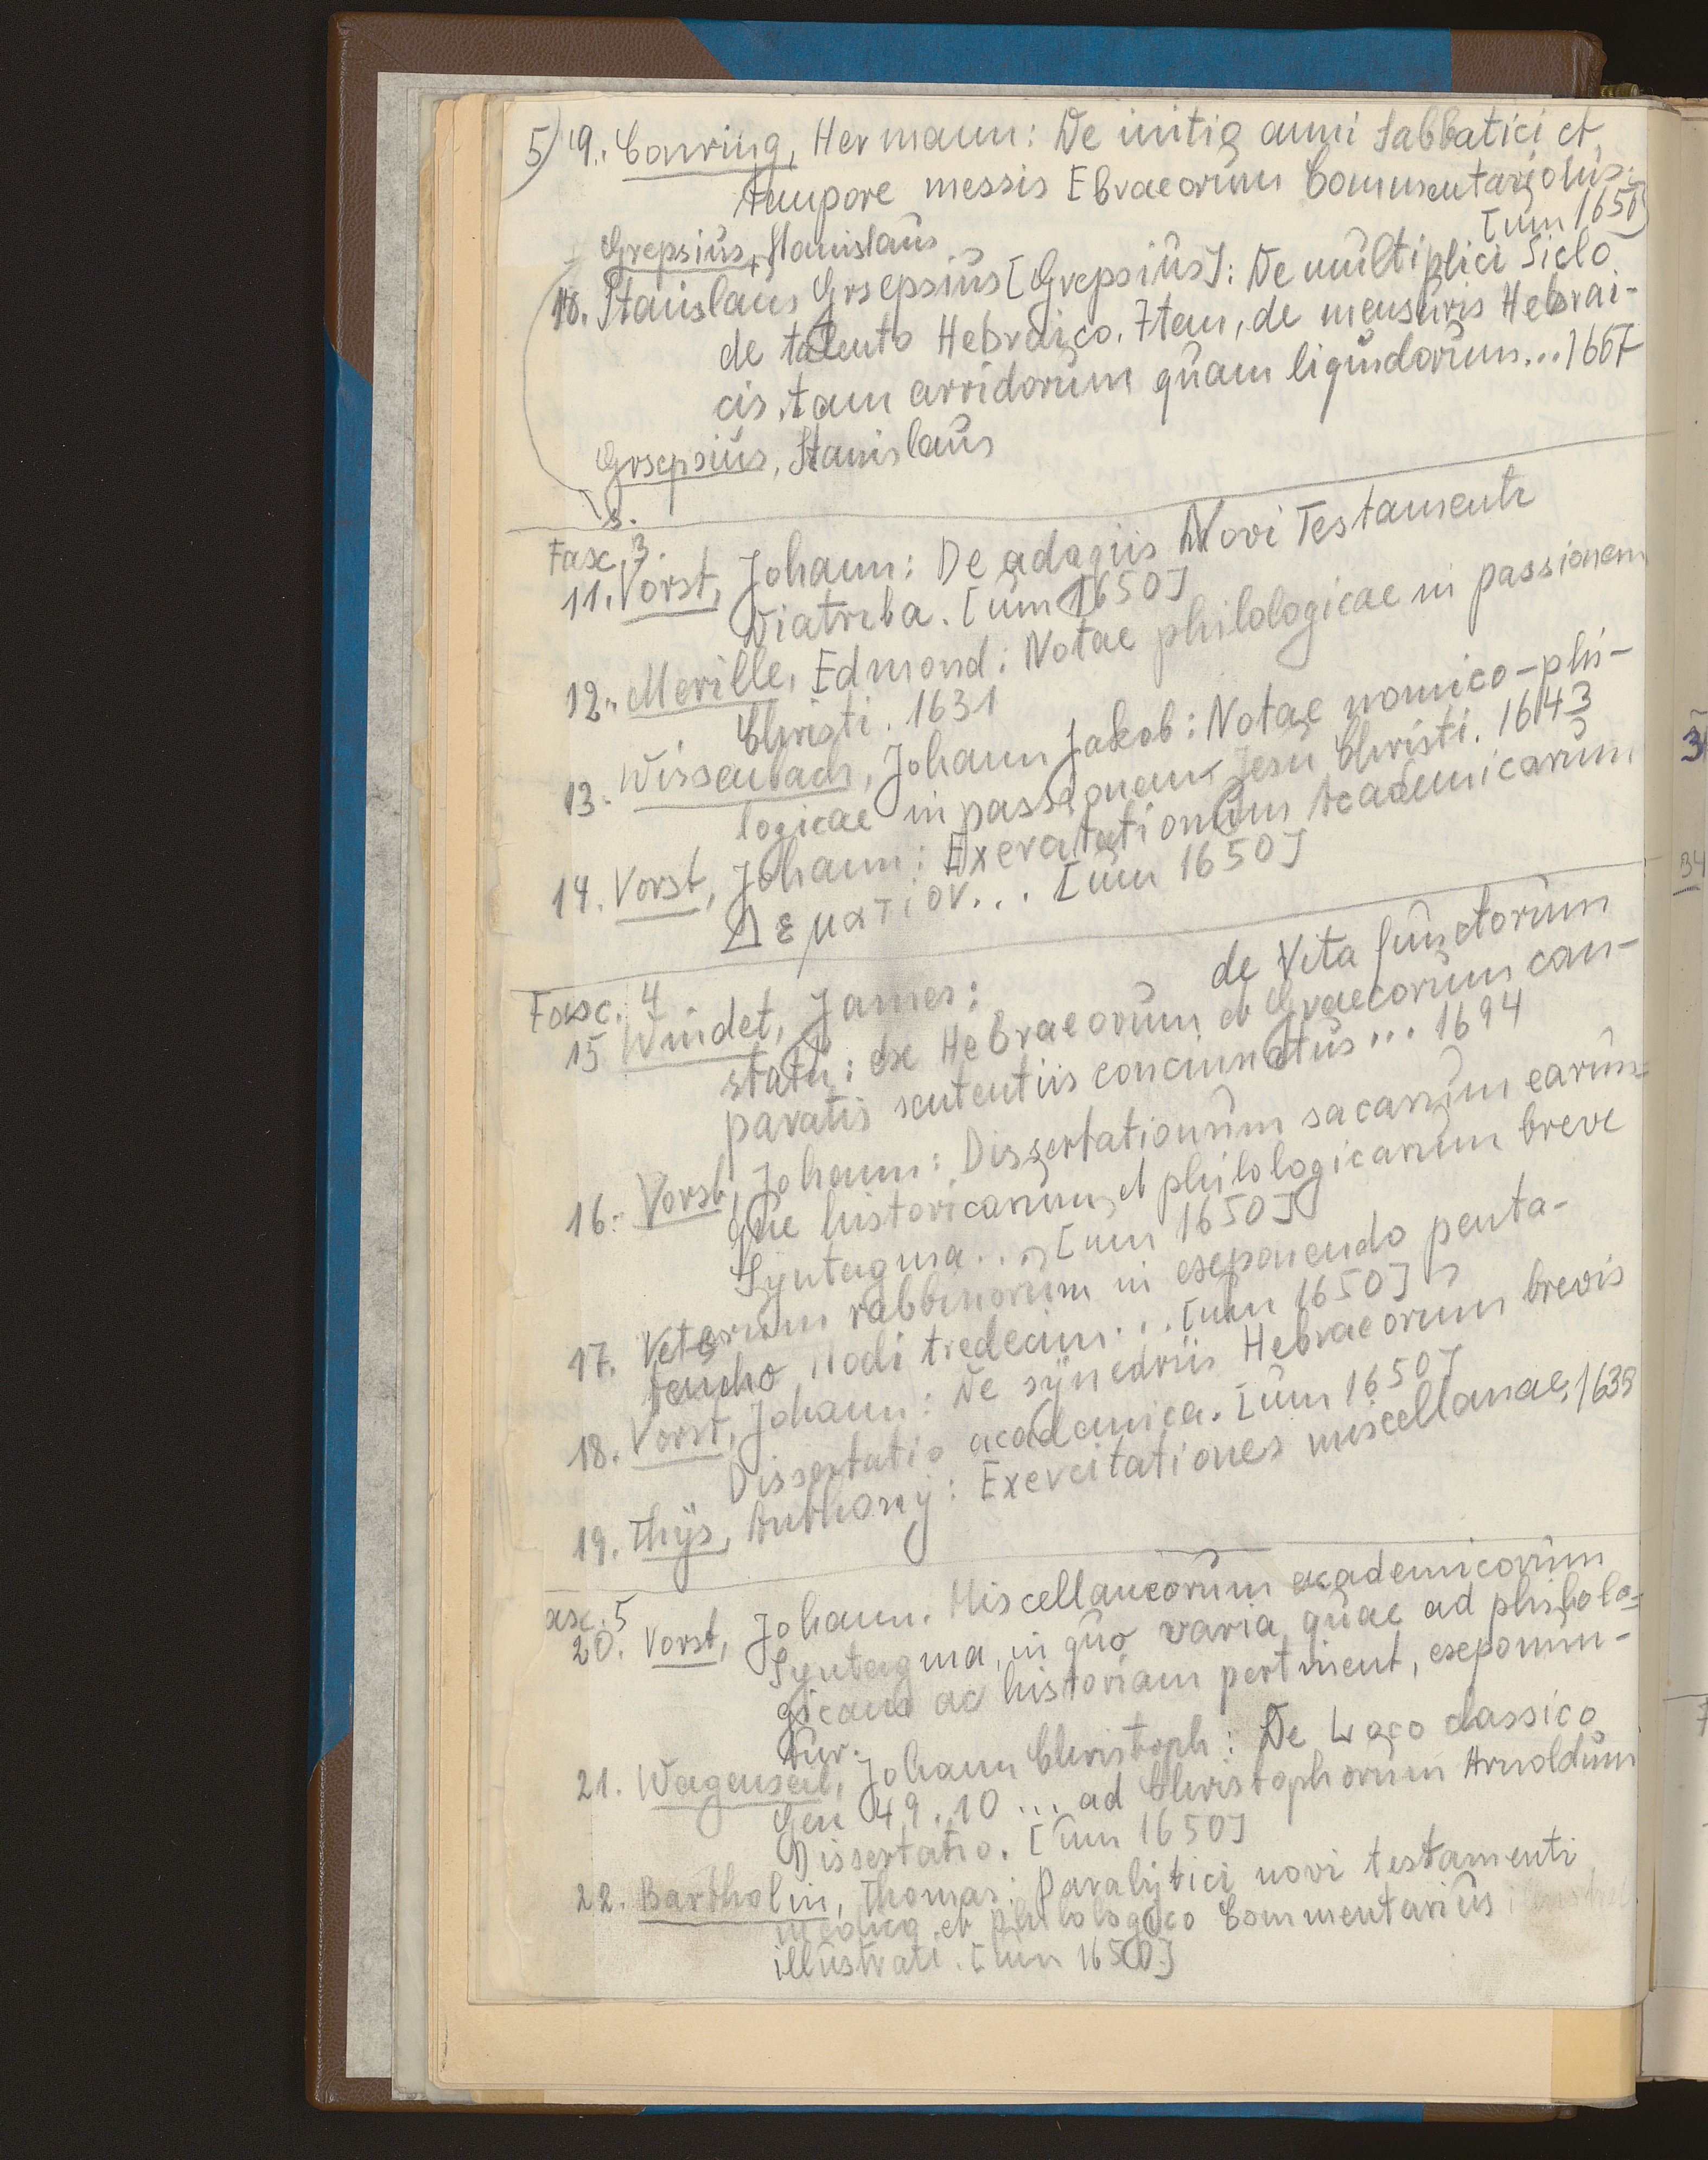 5) 9. Conring, Hermann: De initio anni sabbatici et
tempore messis Ebraeorum Commentariolus.
[um 1650]
Grepsius, Stanislaus
10. Stanislaus Grsepsius [Grepsius]: De multiplici Siclo
de talento Hebraico. Item, de mensuris Hebrai-
cis, tam arridorum quam liquidorum... 1667
Grsepsius, Stanislaus
s.
Fasc. 3.
11. Vorst, Johann: De adagiis Novi Testamenti
Diatriba. [um 1650]
12. Merille, Edmond: Notae philologicae in passionem
Christi. 1631
13. Wissenbach, Johann Jakob: Notae nomico-phi-
logicae in passionem Jesu Christi. 1643
14. Vorst, Johann: Exercitationum Academicarum
Δεματιον... [um 1650]
Fasc. 4
15 Windet, James: de Vita functorum
statu: ex Hebraeorum et Graecorum com-
paratis sententiis concinnatus... 1694
16. Vorst, Johann: Dissertationum sacarum earum-
que historicarum et philologicarum breve
Syntagma... [um 1650]
17. Veterum rabbinorum in exponendo penta-
teucho modi tredecim... [um 1650]
18. Vorst, Johann: De synedriis Hebraeorum brevis
Dissertatio academica. [um 1650]
19. Thijs, Anthony: Exercitationes miscellanae, 1639
asc. 5
20. Vorst, Johann. Miscellaneorum academicorum
Syntagma, in quo varia quae ad philolo-
gicam ac historiam pertinent, exponun-
tur.
21. Wagenseil, Johann Christoph: De Loco classico
Gen 49.10 ... ad Christophorum Arnoldum
Dissertatio. [um 1650]
22. Bartholin, Thomas: Paralytici novi testamenti
medico et philologico Commentarius
illustrati. [um 1650]